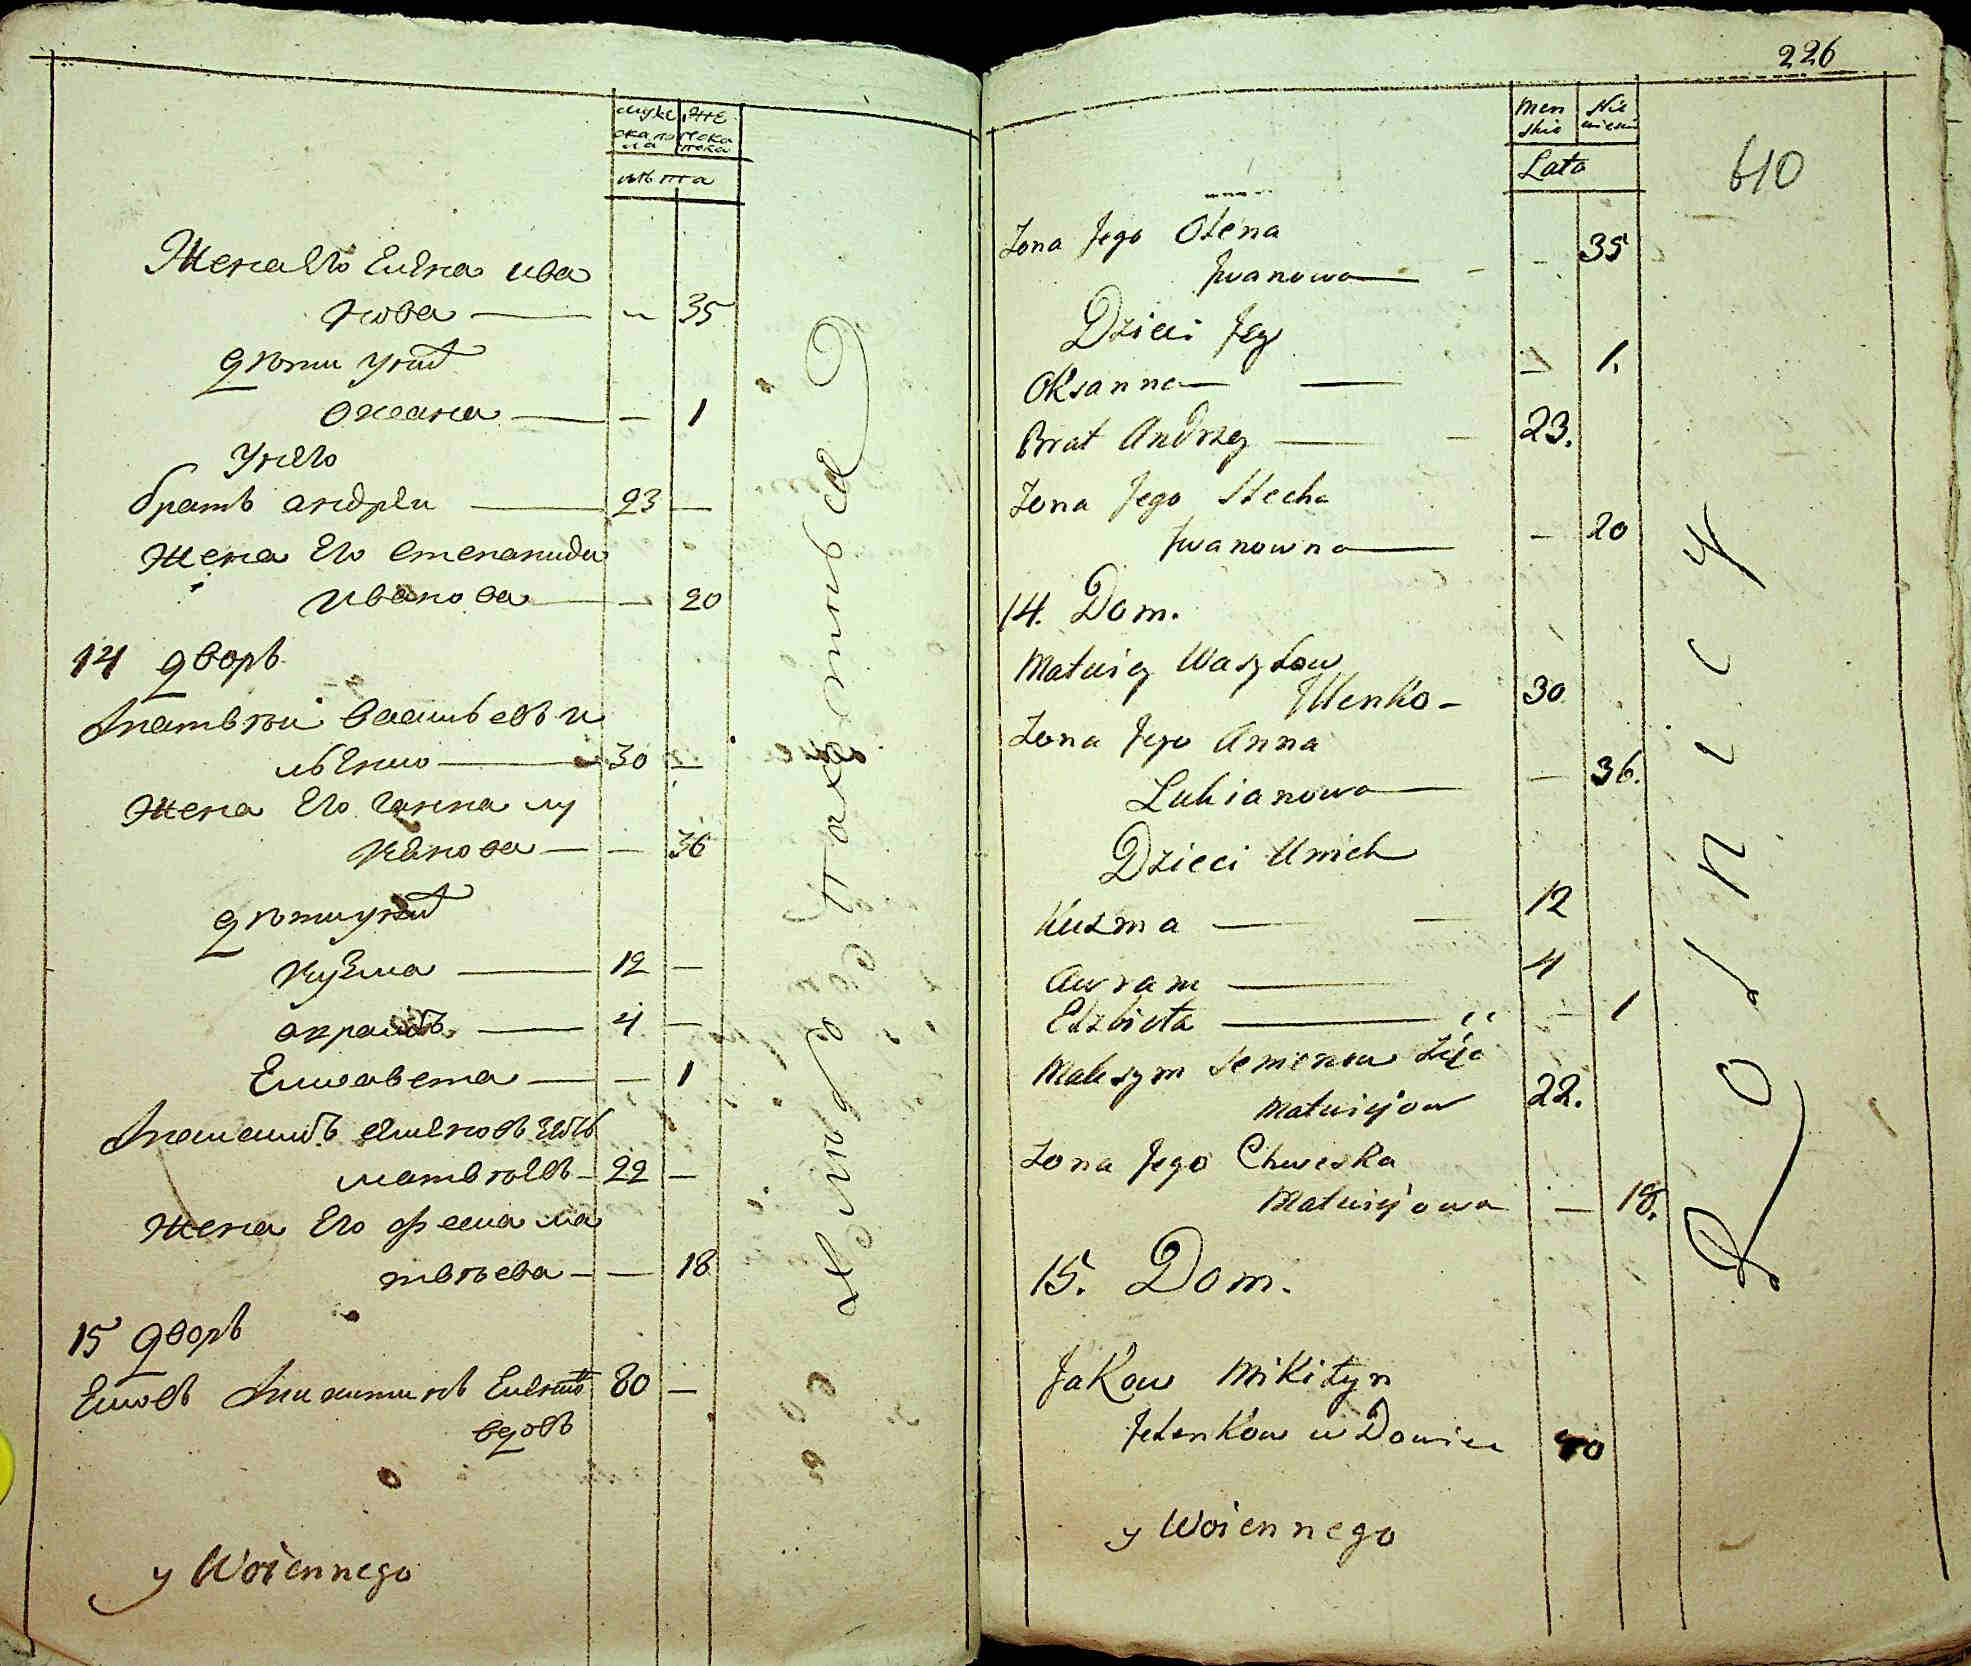 мужеска пола
женска пола
лѣта
Жена его Елена Ива
нова — " 35
дѣти у них
Оксана — — 1
У него
братъ андрей — 23 —
жена Его степанида
Иванова — — 20
14 дворъ
Матвѣй Васильевъ И
льенко — 30 —
жена Его Ганна лу
кянова — — 36
дѣти у них
Кузма — 12 —
авраамъ — 4 —
Елисавета — — 1
Максимъ семеновъ зять
матвѣевъ — 22 —
жена Его феска ма
твѣева — — 18
15 дворъ
Яковъ Микитинъ Еленковъ 80 —
вдовъ
y Woiennego
226
610
Men
skie
Nie
wiescie
Lata
Zona Jego Olena
Jwanowa — - - 35
Dzieci Jeg
Oksanna — — 1.
Brat Andrzey — 23.
Zona Jego Stecha
Jwanowna — — 20
14. Dom.
Matwiey Wasylow
Illenko - 30
Zona Jego Anna
Lukianowa — — 36.
Dzieci Unich
Kuzma — — 12
Awram — 4
Elzbieta — — 1
Maksym Semenow Zięć
Matwiejow 22.
Zona Jego Chweska
Matwiejowa — 18.
15. Dom.
Jakow Mikityn
Jelenkow wDowiec 40
y Woiennego
Rolnicy